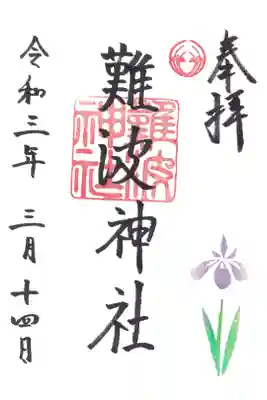 奉拝
難波神社
難波
神社
令和三年 三月 十四日